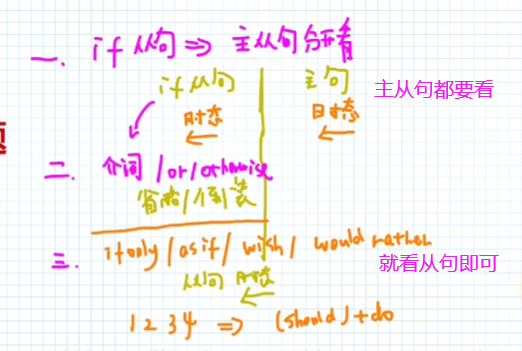 一. if从句 ⇒ 主从句分开看
if从句 主句
主从句都要看
时态 时态
题
二. 介词/or/otherwise
省略/倒装
三. if only/as if/wish/would rather
就看从句即可
从句 时态
1 2 3 4 ⇒ (should)+do